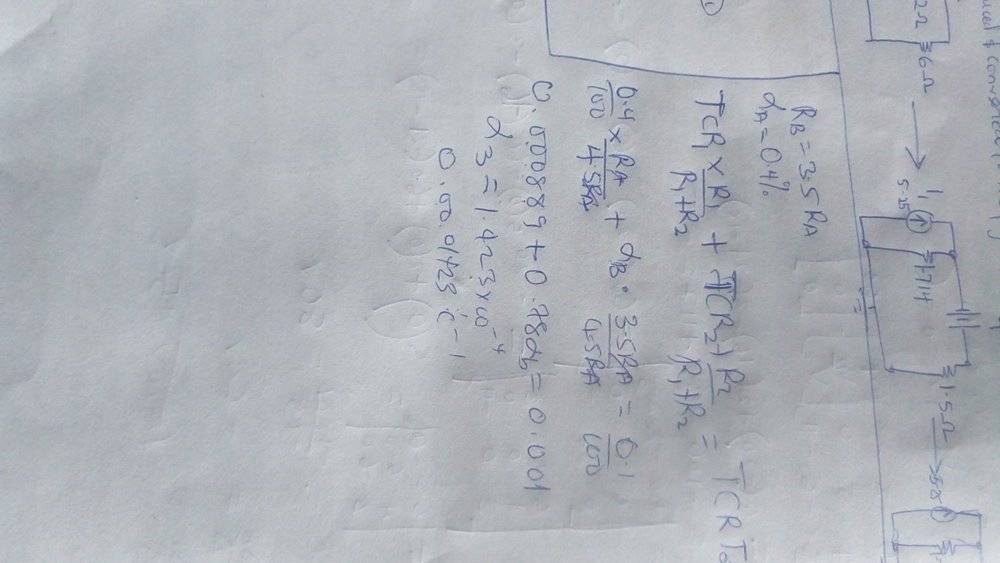 2Ω
6Ω
5.25
1.714
1.5Ω
R_B = 3.5 R_A
α_A = 0.4%
TCR₁ × R₁/(R₁+R₂) + TCR₂ × R₂/(R₁+R₂) = TCR
0.4/100 × R_A/4.5R_A + α_B · 3.5R_A/4.5R_A = 0.1/100
0.000889 + 0.78α_B = 0.001
α_B = 1.423×10⁻⁴
0.0001423 °C⁻¹